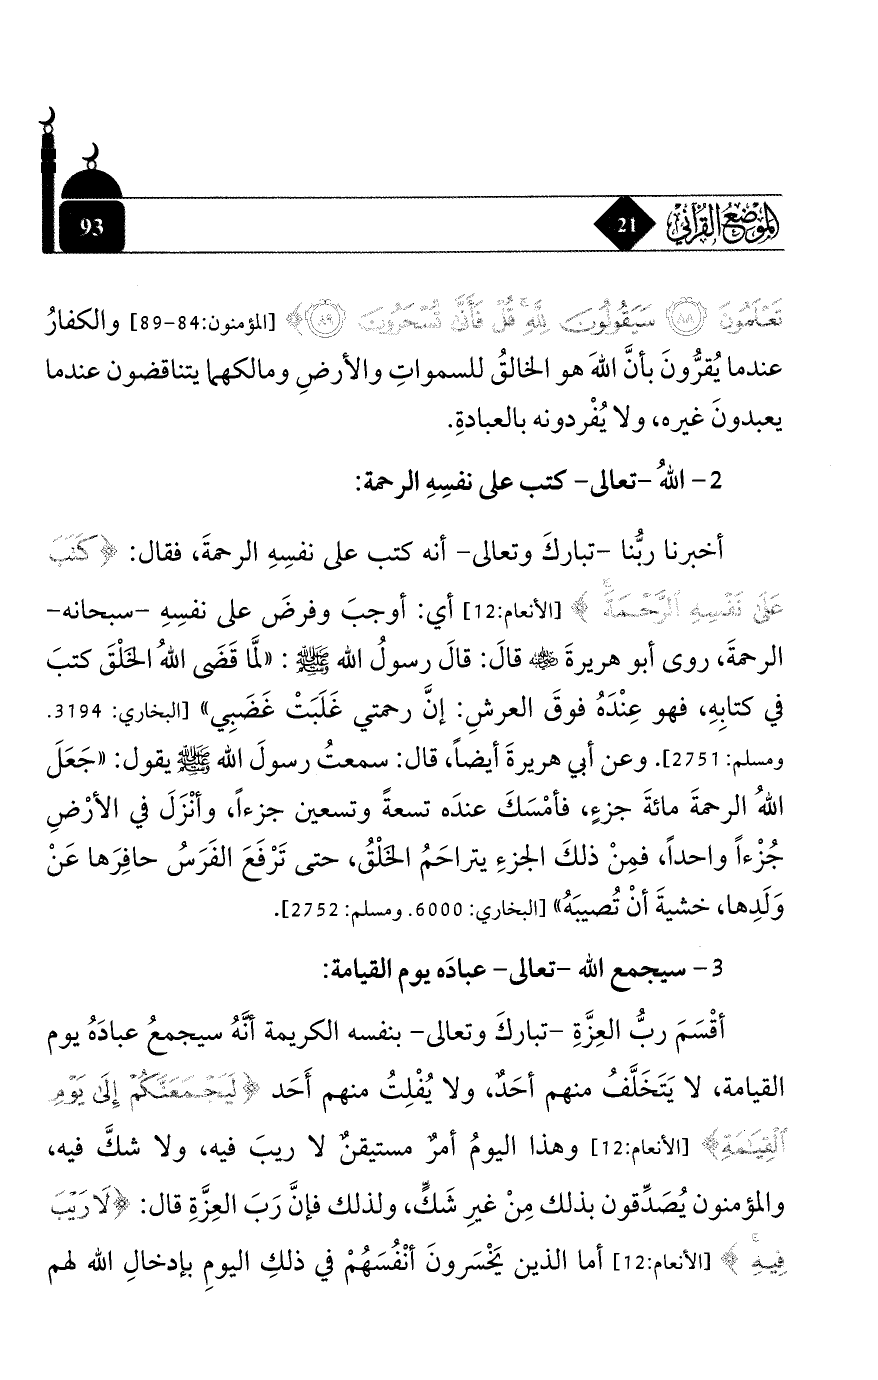 الموضع القرآني 21 93
تَعْلَمُونَ ﴿٨٨﴾ سَيَقُولُونَ لِلَّهِ ۚ قُلْ فَأَنَّىٰ تُسْحَرُونَ ﴿٨٩﴾﴾ [المؤمنون:84-89] والكفارُ
عندما يُقرُّونَ بأنَّ اللهَ هو الخالقُ للسمواتِ والأرضِ ومالكهما يتناقضون عندما
يعبدونَ غيره، ولا يُفْردونه بالعبادةِ.
2- اللهُ -تعالى- كتب على نفسِهِ الرحمة:
أخبرنا ربُّنا -تباركَ وتعالى- أنه كتب على نفسِهِ الرحمةَ، فقال: ﴿كَتَبَ
عَلَىٰ نَفْسِهِ الرَّحْمَةَ ۚ﴾ [الأنعام:12] أي: أوجبَ وفرضَ على نفسِهِ -سبحانه-
الرحمةَ، روى أبو هريرةَ رضي الله عنه قالَ: قالَ رسولُ الله ﷺ: «لمَّا قَضَى اللهُ الخَلْقَ كتبَ
في كتابِهِ، فهو عِنْدَهُ فوقَ العرشِ: إنَّ رحمتي غَلَبَتْ غَضَبِي» [البخاري: 3194.
ومسلم: 2751]. وعن أبي هريرةَ أيضاً، قال: سمعتُ رسولَ الله ﷺ يقول: «جَعَلَ
اللهُ الرحمةَ مائةَ جزءٍ، فأمْسَكَ عندَه تسعةً وتسعين جزءاً، وأنْزَلَ في الأرْضِ
جُزْءاً واحداً، فمِنْ ذلكَ الجزءِ يتراحَمُ الخَلْقُ، حتى تَرْفَعَ الفَرَسُ حافِرَها عَنْ
وَلَدِها، خشيةَ أنْ تُصيبَهُ» [البخاري: 6000. ومسلم: 2752].
3- سيجمع الله -تعالى- عبادَه يوم القيامة:
أقْسَمَ ربُّ العِزَّةِ -تباركَ وتعالى- بنفسه الكريمة أنَّهُ سيجمعُ عبادَهُ يوم
القيامة، لا يَتَخَلَّفُ منهم أحَدٌ، ولا يُفْلِتُ منهم أَحَد ﴿لَيَجْمَعَنَّكُمْ إِلَىٰ يَوْمِ
الْقِيَامَةِ﴾ [الأنعام:12] وهذا اليومُ أمرٌ مستيقنٌ لا ريبَ فيه، ولا شكَّ فيه،
والمؤمنون يُصَدِّقون بذلك مِنْ غيرِ شَكٍّ، ولذلك فإنَّ رَبَ العِزَّةِ قال: ﴿لَا رَيْبَ
فِيهِ ۚ﴾ [الأنعام:12] أما الذين يَخْسَرونَ أنْفُسَهُمْ في ذلكِ اليومِ بإدخالِ الله لهم